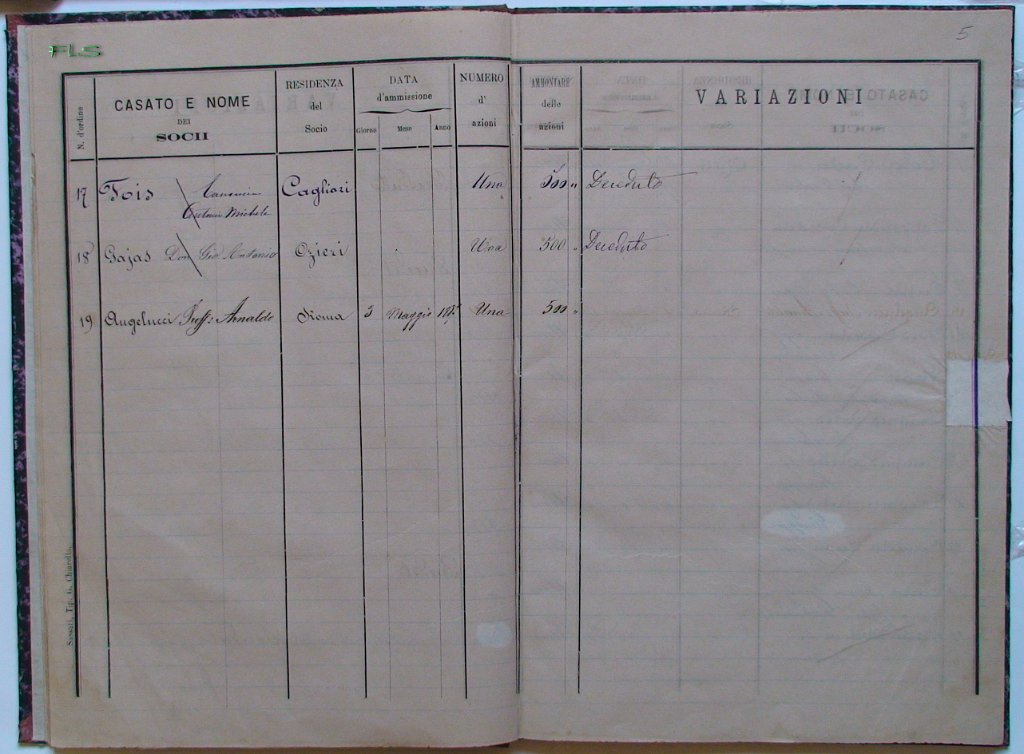 FLS
5
N. d'ordine
CASATO E NOME
DEI
SOCII
RESIDENZA
del
Socio
DATA
d'ammissione
Giorno Mese Anno
NUMERO
d'
azioni
AMMONTARE
delle
azioni
VARIAZIONI
17 Fois Canonico Cagliari Una 500 " Deceduto
Antonio Michele
18 Gajas Don Gio Antonio Ozieri Una 500 " Deceduto
19 Angelucci Proff: Arnaldo Roma 3 Maggio Una 500 "
Sassari, Tip. G. Chiarella.